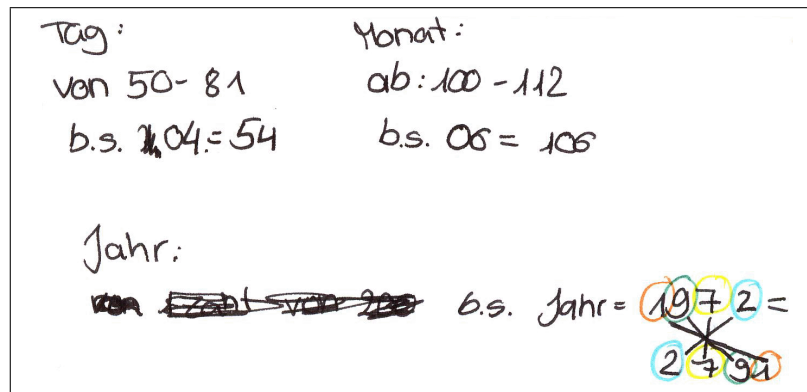 Tag:
von 50-81
b.s. 04.= 54
Monat:
ab: 100 - 112
b.s. 06 = 106
Jahr:
b.s. Jahr = 1972 =
2791